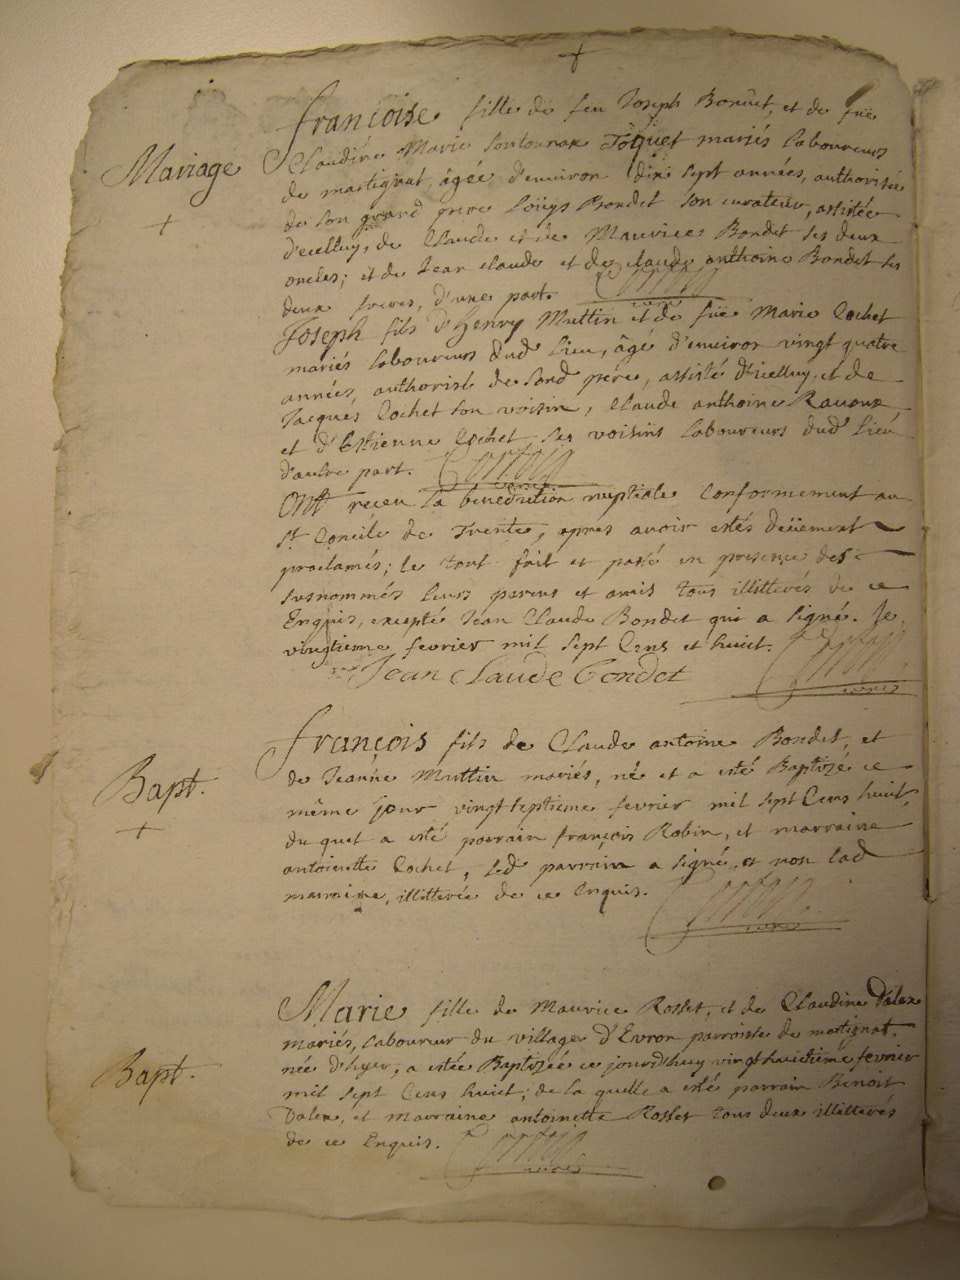 Mariage
françoise fille de feu Joseph Bondet, et de fuë
Claudine Marie mariés laboureurs
de martignat, âgée d'environ dix sept années, authorisée
de son grand pere Loüys Bondet son curateur, assistée
d'icelluy, de Claude et de Maurice Bondet ses deux
oncles; et de Jean claude et de claude anthoine Bondet ses
deux freres, d'une part.
Joseph fils d'Henry Muttin et de fuë Marie Cochet
mariés laboureurs dud lieu, âgé d'environ vingt quatre
années, authorisé de sond pére, assisté d'icelluy, et de
Jacques Cochet son voisin, Claude anthoine Ravoux
et d'Estienne Cochet ses voisins laboureurs dud lieu
d'autre part.
Ont receu la benediction nuptiale conformement au
st Concile de Trente, apres avoir estés deüement
proclamés; le tout fait et passé en presence des
susnommés leurs parens et amis tous illitterés de ce
Enquis, excepté Jean Claude Bondet qui a signé. le
vingtieme fevrier mil sept Cens et huict.
Jean Claude Bondet
Bapt.
françois fils de Claude antoine Bondet, et
de Jeanne Muttin mariés, né et a esté Baptizé ce
même jour vingt septieme fevrier mil sept Cens huict,
du quel a esté parrain françois Robin, et marraine
antoinette Cochet, led parrain a signé, et non lad
marraine, illitterée de ce Enquis.
Bapt.
Marie fille de Maurice Rosset, et de Claudine Dalex
mariés, laboureur du village d'Evron parroisse de martignat,
née d'hyer, a estée Baptizée ce jourd'huy vingt huictiéme fevrier
mil sept Cens huict; de la quelle a esté parrain Benoit
Dalex, et marraine antoinette Rosset tous deux illitterés
de ce Enquis.